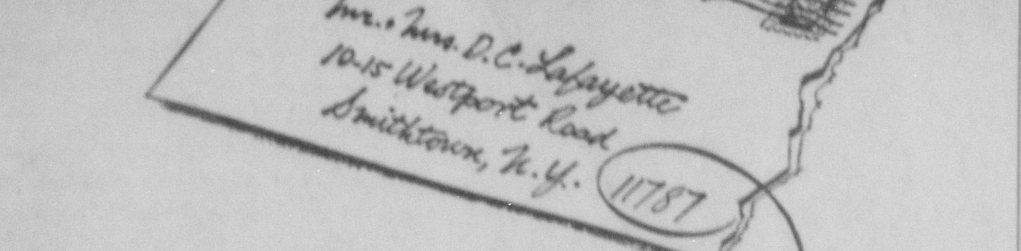 Mr. & Mrs. D. C. Lafayette
10-15 Westport Road
Smithtown, N.Y. 11787